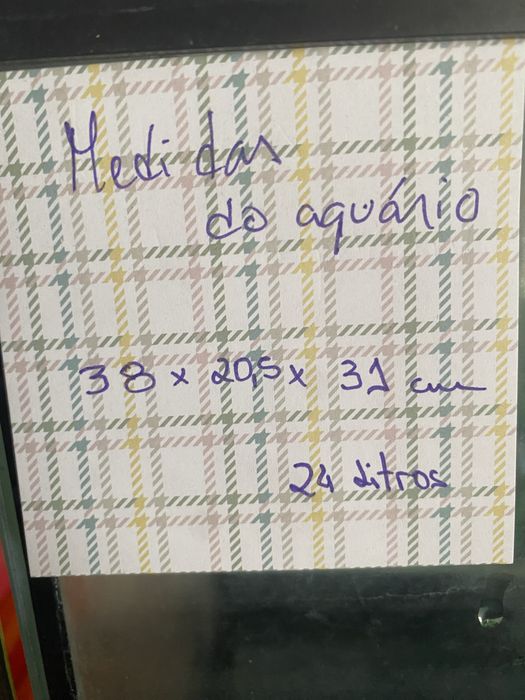 Medidas
do aquário
38 x 20,5 x 31 cm
24 litros